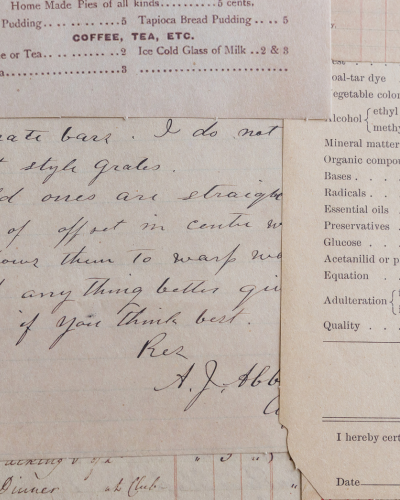 Home Made Pies of all kinds..........5 cents,
Pudding............5 Tapioca Bread Pudding....5
COFFEE, TEA, ETC.
e or Tea............2 Ice Cold Glass of Milk..2 & 3
a................3
bars. I do not
style grates.
ld ones are straight
of offset in centre w
them to warp
any thing better
if you think best.
Res
A. J. Abb
Dinner Club
oal-tar dye
egetable color
Alcohol { ethyl
methy
Mineral matter
Organic compou
Bases . . .
Radicals . .
Essential oils .
Preservatives .
Glucose . .
Acetanilid or p
Equation . .
Adulteration {
Quality . . .
I hereby cert
Date